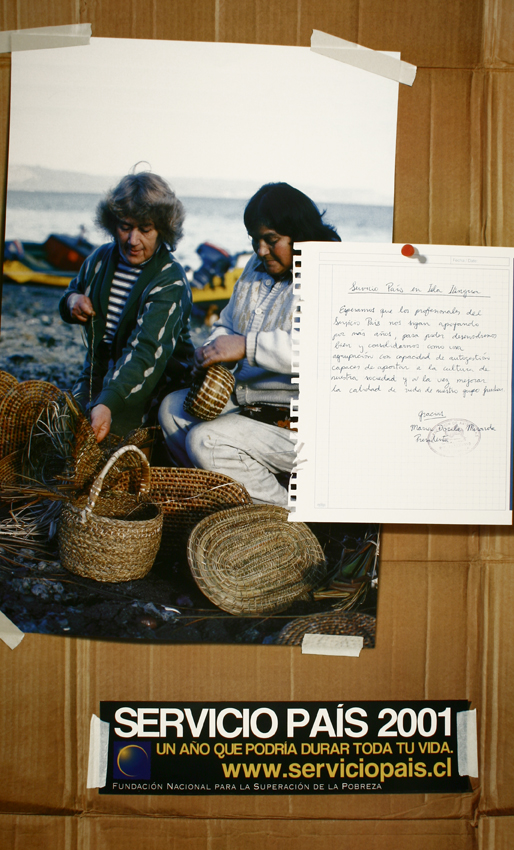 Servicio País en Isla Llingua
Esperamos que los profesionales del
Servicio País nos sigan apoyando
por más años, para poder desarrollarnos
bien y consolidarnos como una
agrupación con capacidad de autogestión
capaces de aportar a la cultura de
nuestra sociedad y a la vez mejorar
la calidad de vida de nuestro grupo familiar
Gracias
María
Presidenta
SERVICIO PAÍS 2001
UN AÑO QUE PODRÍA DURAR TODA TU VIDA.
www.serviciopais.cl
FUNDACIÓN NACIONAL PARA LA SUPERACIÓN DE LA POBREZA